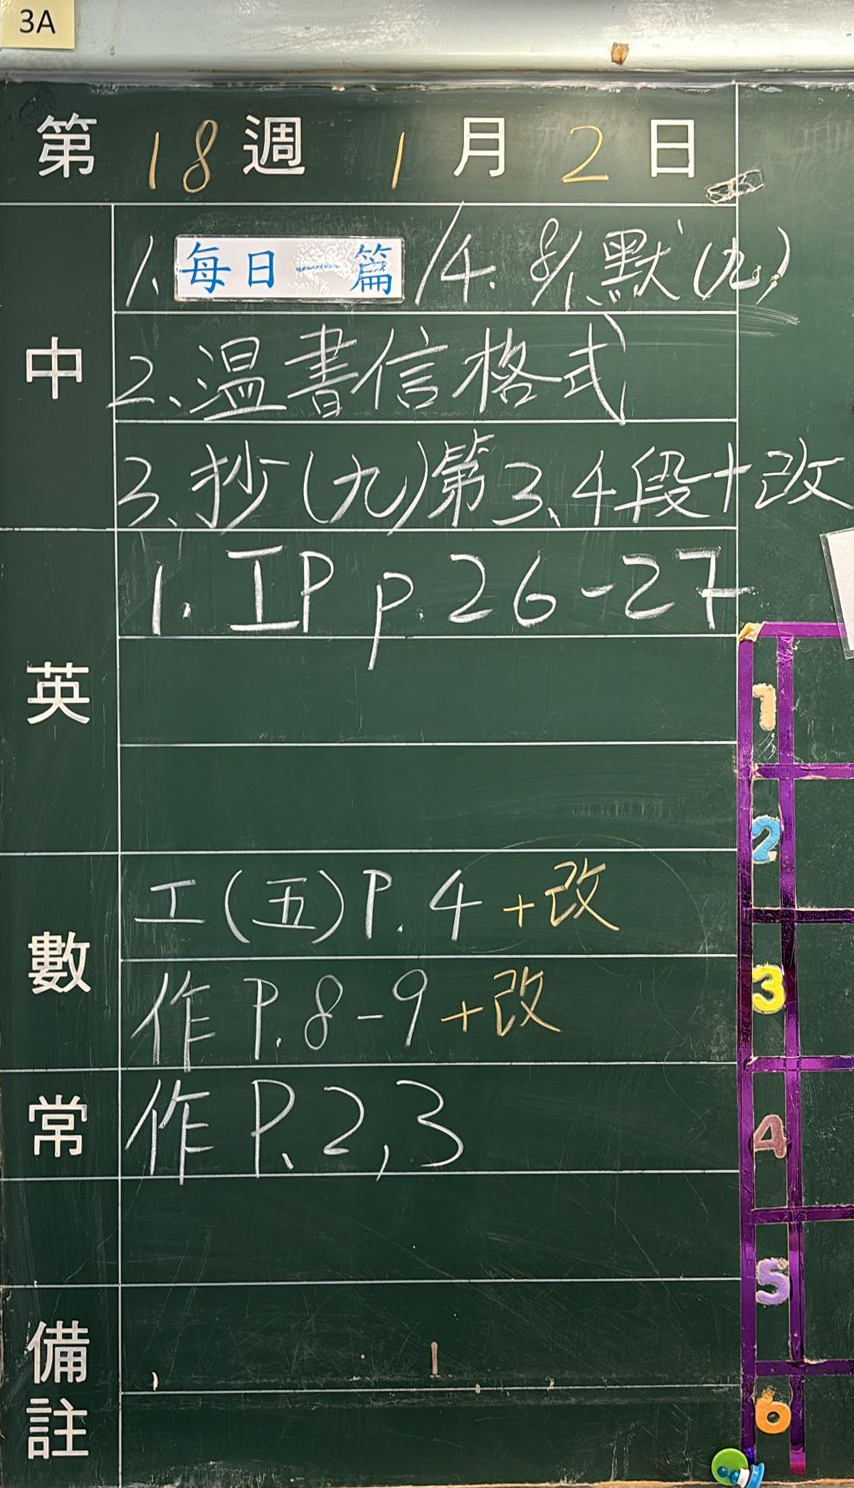 3A
第 18 週 1 月 2 日
中
1. 每日一篇 /4. 8/1默(九)
2、温書信格式
3、抄(九)第3、4段+改
英
1. IP p.26-27
數
工(五)P.4 +改
作 P.8-9 +改
常
作 P.2,3
備註
1
2
3
4
5
6